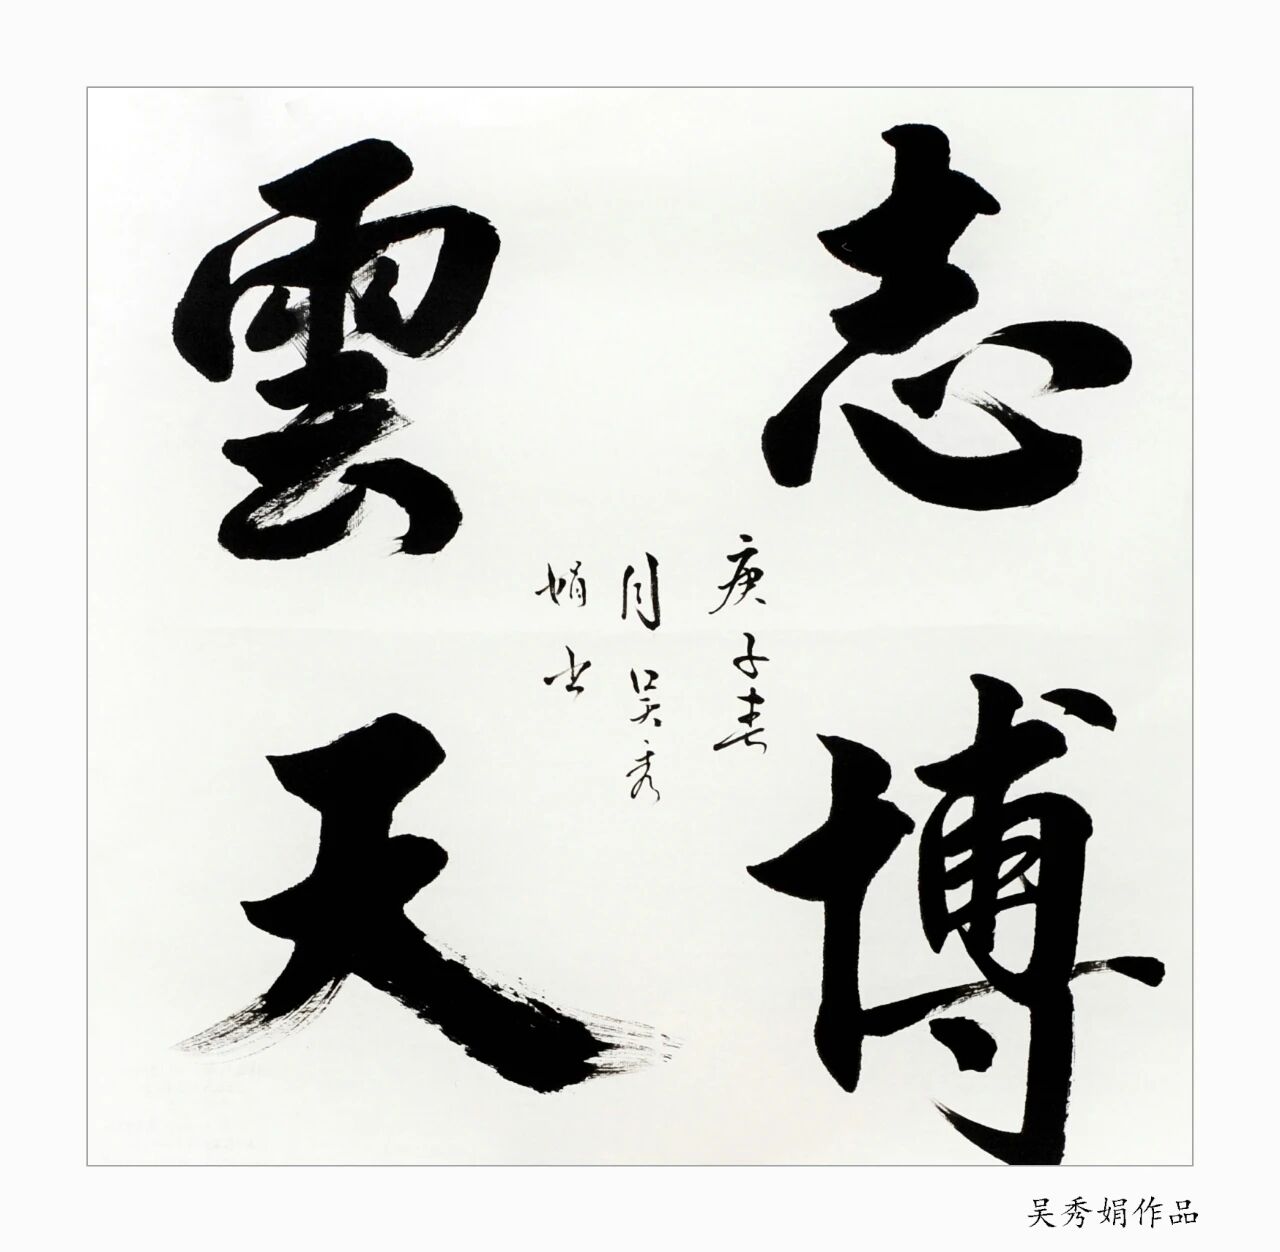 志博
雲天
庚子春
月吴秀
娟书
吴秀娟作品